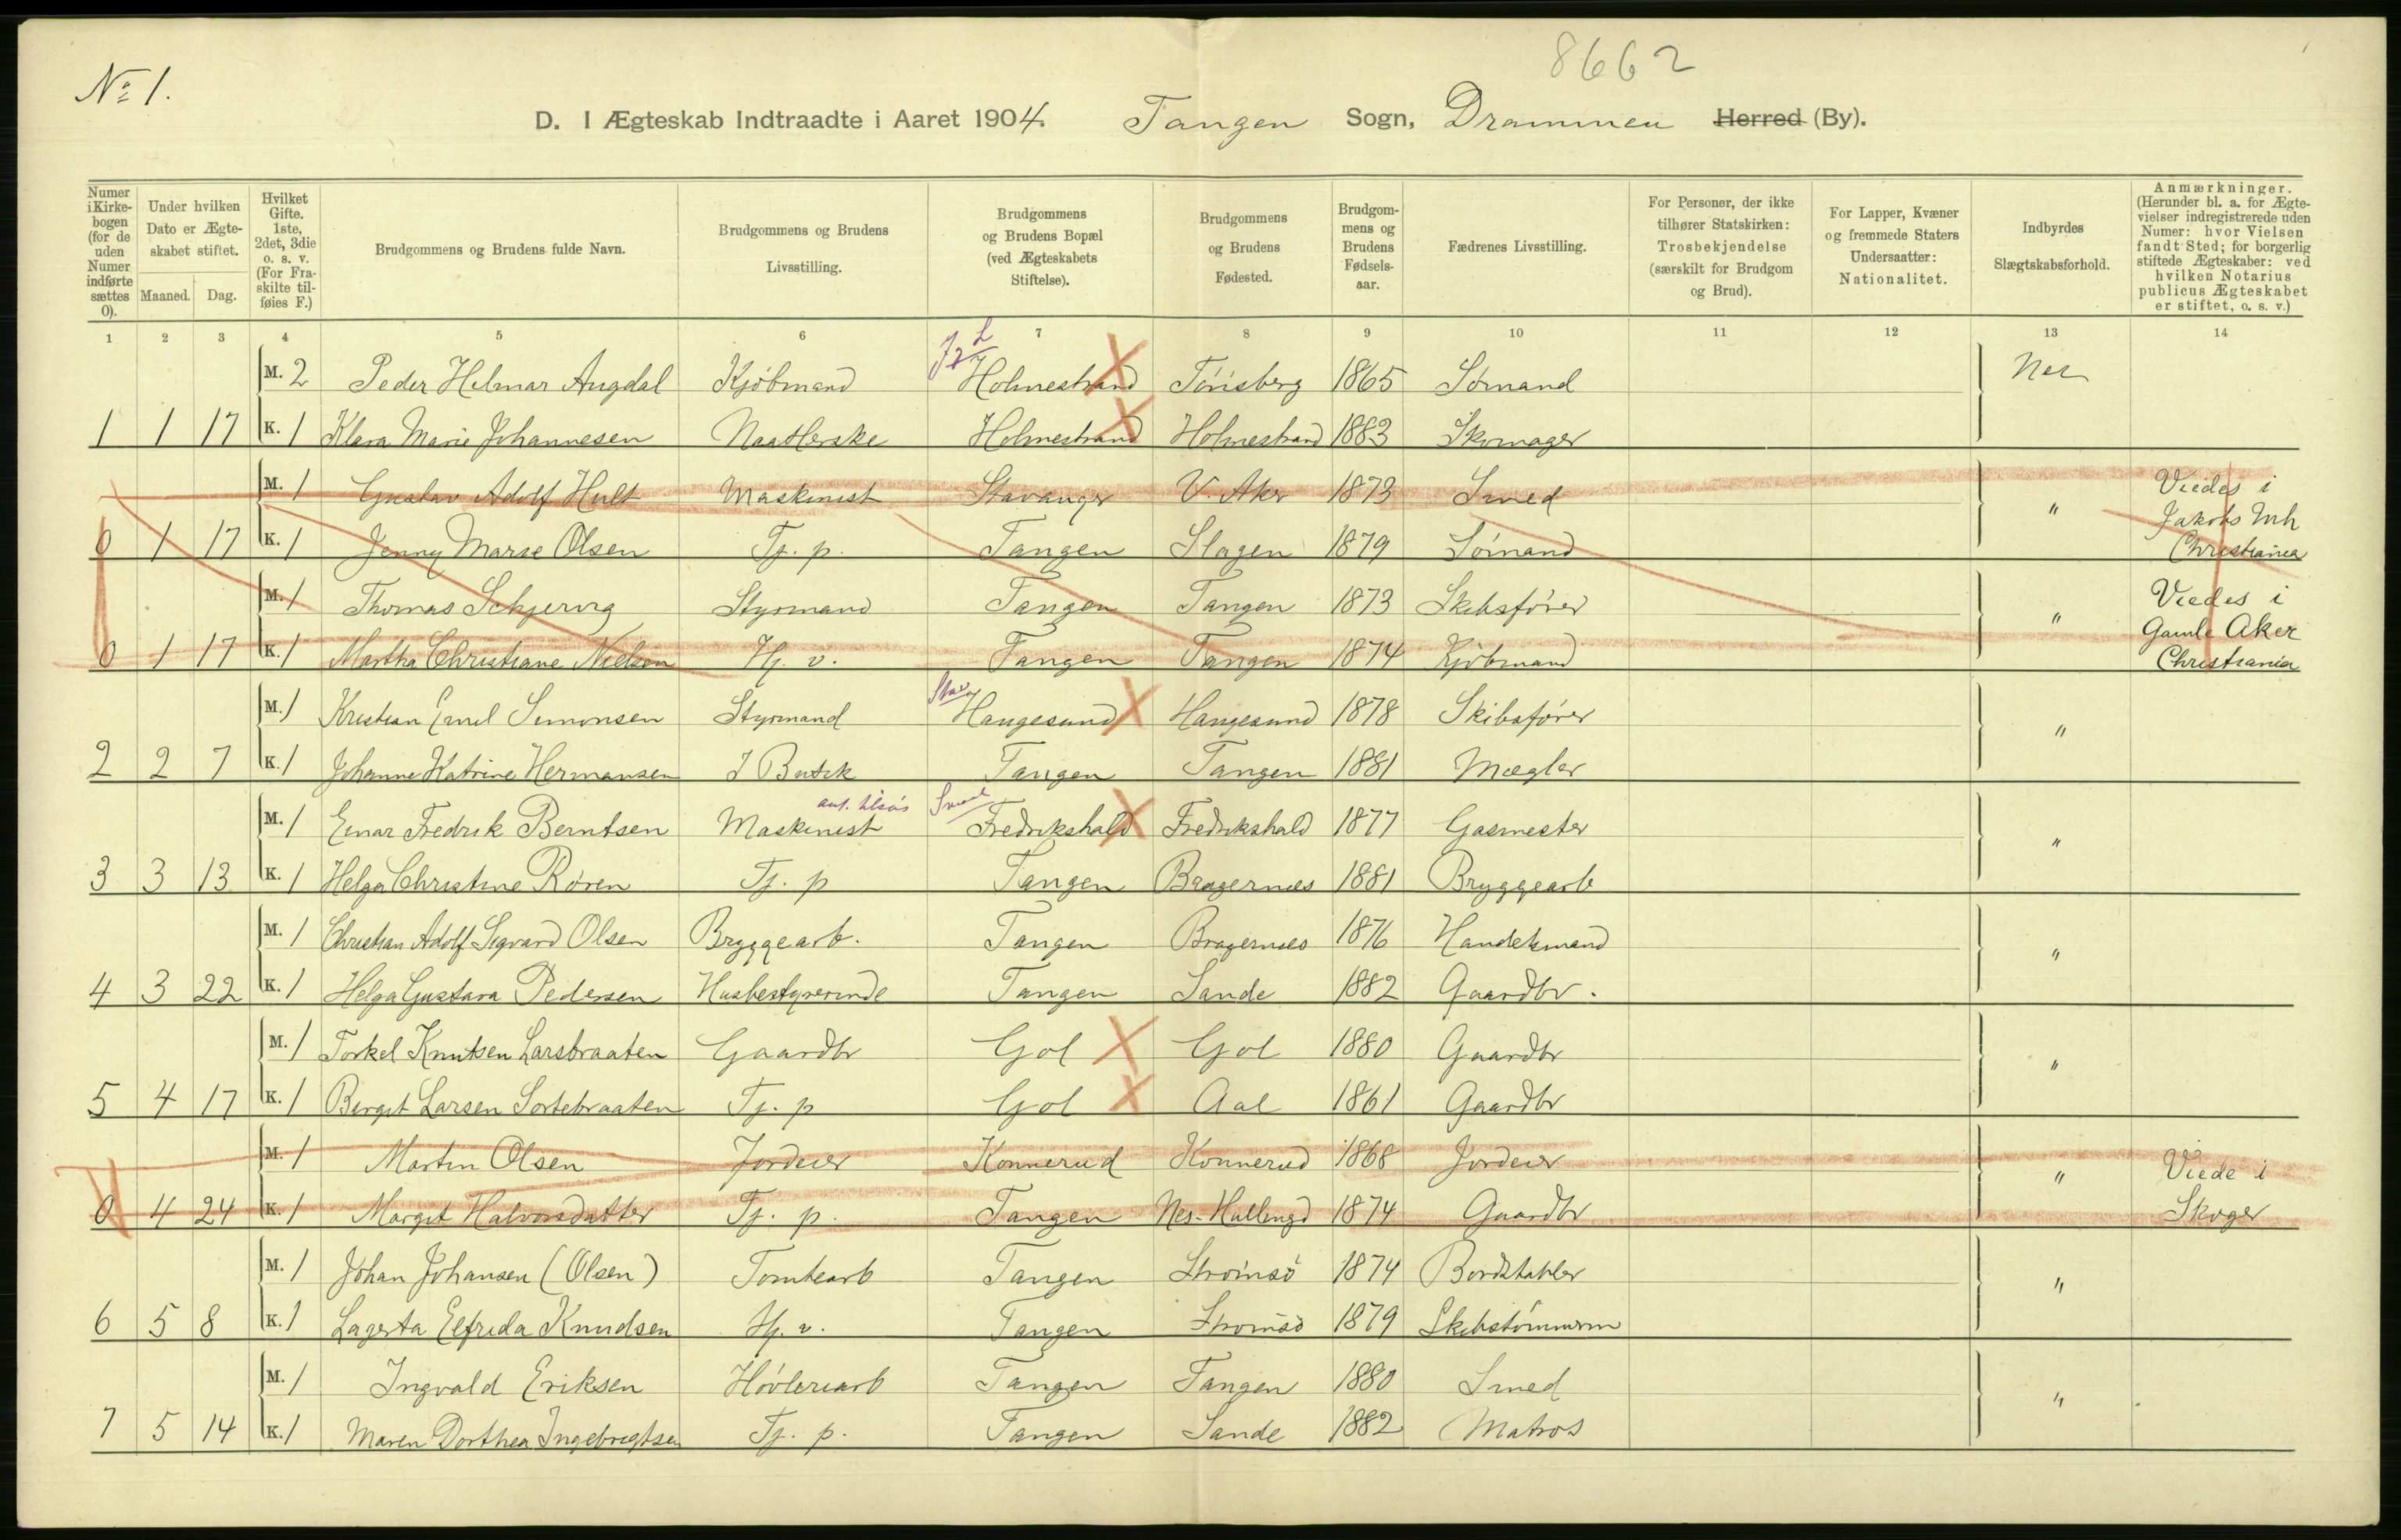 8662
No 1.
D. I Ægteskab Indtraadte i Aaret 1904. Tangen Sogn, Drammen Herred (By).
Numer i Kirkebogen (for de uden Numer indførte sættes 0). | Under hvilken Dato er Ægteskabet stiftet. Maaned. Dag. | Hvilket Gifte. 1ste, 2det, 3die o. s. v. (For Fraskilte tilføies F.) | Brudgommens og Brudens fulde Navn. | Brudgommens og Brudens Livsstilling. | Brudgommens og Brudens Bopæl (ved Ægteskabets Stiftelse). | Brudgommens og Brudens Fødested. | Brudgommens og Brudens Fødselsaar. | Fædrenes Livsstilling. | For Personer, der ikke tilhører Statskirken: Trosbekjendelse (særskilt for Brudgom og Brud). | For Lapper, Kvæner og fremmede Staters Undersaatter: Nationalitet. | Indbyrdes Slægtskabsforhold. | Anmærkninger. (Herunder bl. a. for Ægtevielser indregistrerede uden Numer: hvor Vielsen fandt Sted; for borgerlig stiftede Ægteskaber: ved hvilken Notarius publicus Ægteskabet er stiftet, o. s. v.)
1 2 3 4 5 6 7 8 9 10 11 12 13 14
M. 2 Peder Helmar Augdal Kjøbmand Holmestrand Tønsberg 1865 Sømand Nei
1 1 17 K. 1 Klara Marie Johannesen Naatlerske Holmestrand Holmestrand 1883 Skomager
M. 1 Gustav Adolf Hult Maskinist Stavanger V. Aker 1873 Smed " Viedes i
0 1 17 K. 1 Jenny Marie Olsen Tj. p. Tangen Slagen 1879 Sømand Jakobs Mh
Christiania
M. 1 Thomas Schjervig Styrmand Tangen Tangen 1873 Skibsfører " Viedes i
Gamle Aker
0 1 17 K. 1 Martha Christiane Nielsen Hj. v. Tangen Tangen 1874 Kjøbmand Christiania
M. 1 Kristian Emil Simonsen Styrmand Haugesund Haugesund 1878 Skibsfører "
2 2 7 K. 1 Johanne Katrine Hermansen I Butik Tangen Tangen 1881 Mægler
M. 1 Einar Fredrik Berntsen Maskinist Fredrikshald Fredrikshald 1877 Gasmester "
3 3 13 K. 1 Helga Christine Røren Tj. p Tangen Bragernæs 1881 Bryggearb
M. 1 Christian Adolf Sigvard Olsen Bryggearb. Tangen Bragernæs 1876 Handelsmand "
4 3 22 K. 1 Helga Gustava Pedersen Husbestyrerinde Tangen Sande 1882 Gaardbr.
M. 1 Torkel Knutsen Larsbraaten Gaardbr Gol Gol 1880 Gaardbr "
5 4 17 K. 1 Birgit Larsen Sortebraaten Tj. p Gol Aal 1861 Gaardbr
M. 1 Martin Olsen Jordeier Konnerud Konnerud 1868 Jordeier " Viede i
0 4 24 K. 1 Margit Halvorsdatter Tj. p. Tangen Nes-Hallingd 1874 Gaardbr Skoger
M. 1 Johan Johansen (Olsen) Tomtearb Tangen Strømsø 1874 Bordstabler "
6 5 8 K. 1 Lagerta Elfrida Knudsen Hj. v. Tangen Strømsø 1879 Skibstømmerm
M. 1 Ingvald Eriksen Høvleriarb Tangen Tangen 1880 Smed "
7 5 14 K. 1 Maren Dorthea Ingebrigtsen Tj. p. Tangen Sande 1882 Matros